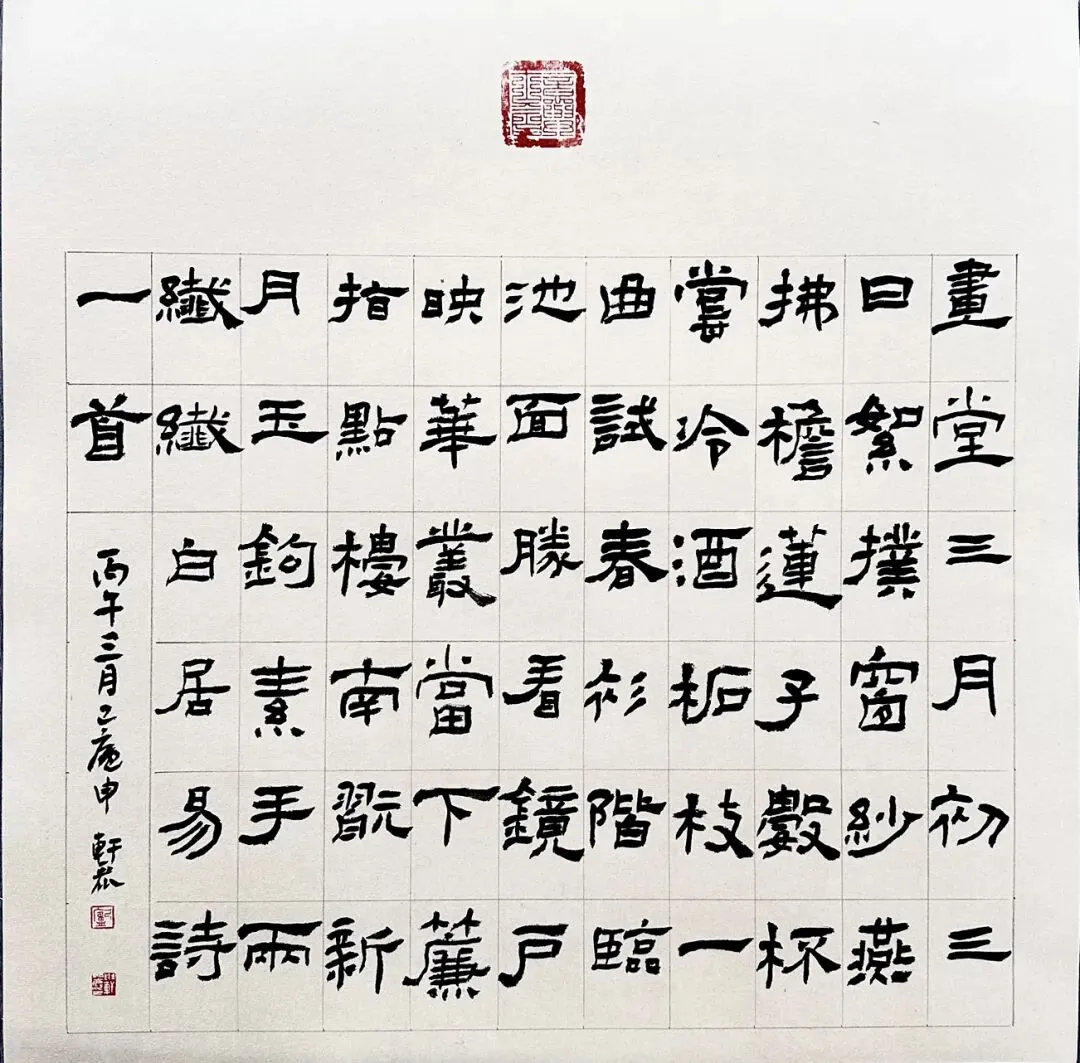 畫堂三月初三
日絮撲窗紗燕
拂檐蓮子數杯
嘗冷酒柘枝一
曲試春衫階臨
池面勝看鏡戶
映華叢當下簾
指點樓南翫新
月玉鉤素手兩
纖纖白居易詩
一首
丙午三月